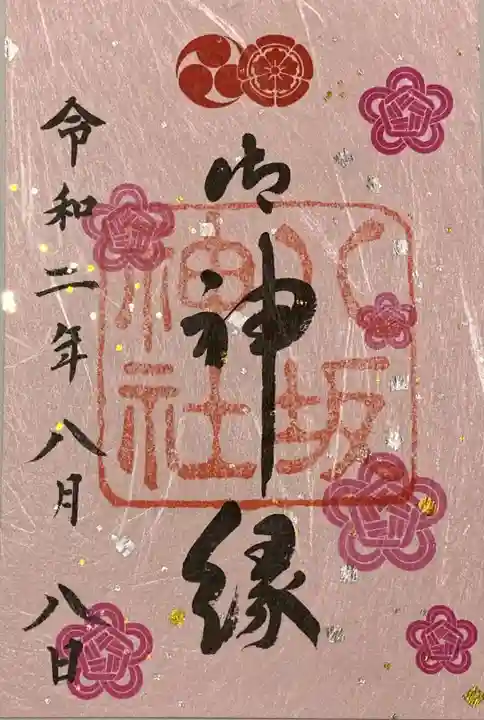 御神縁
八坂
神社
令和二年八月八日